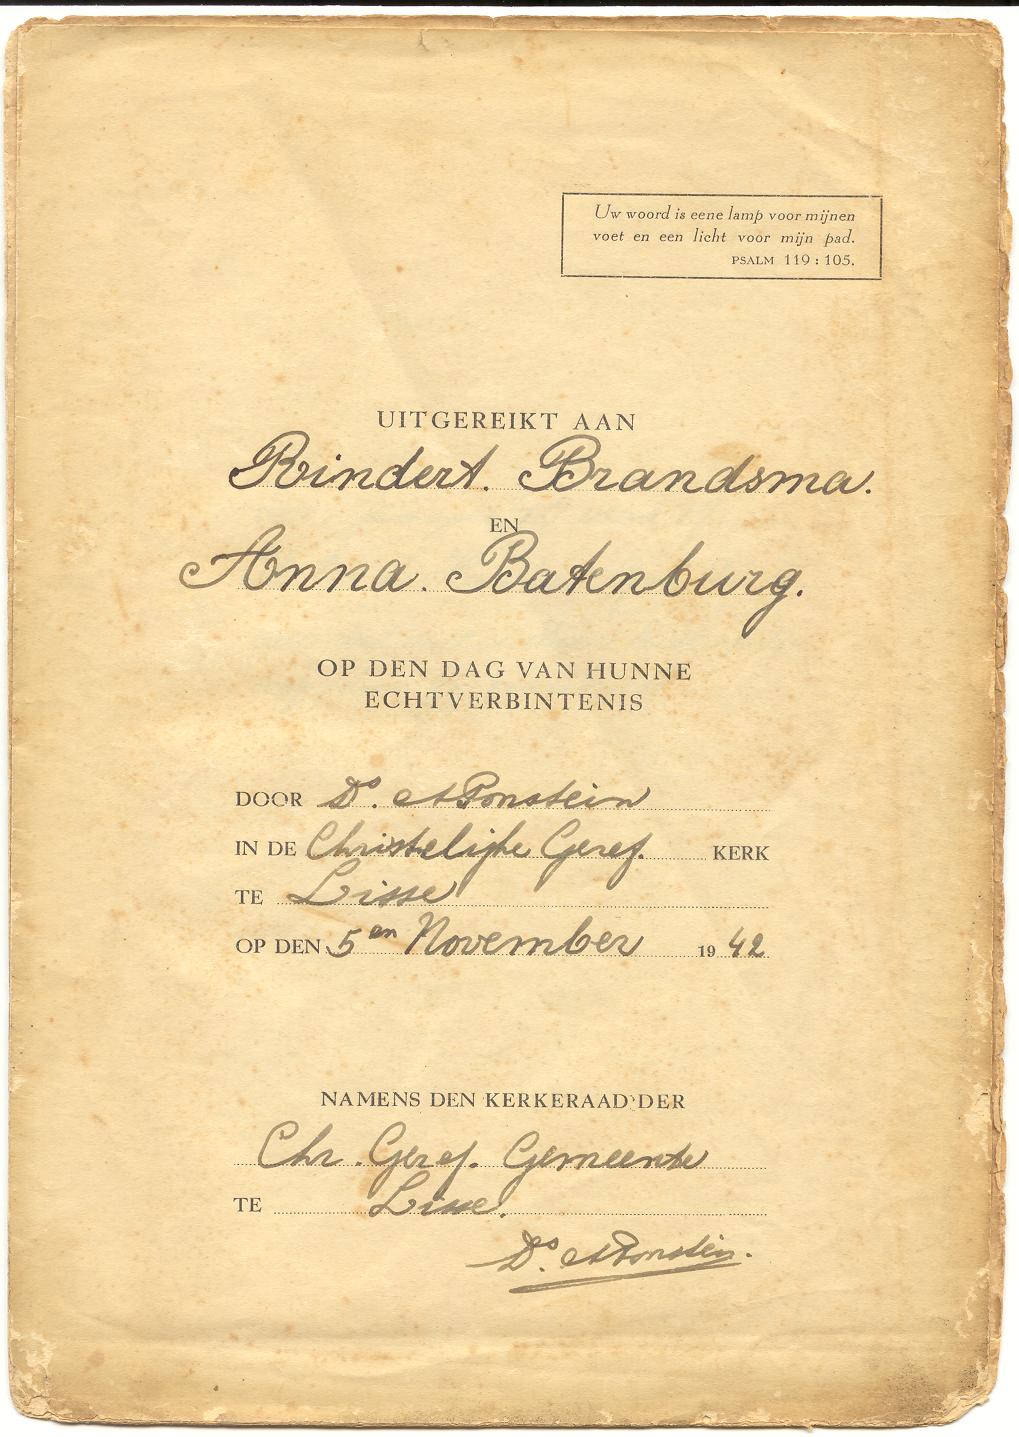 Uw woord is eene lamp voor mijnen
voet en een licht voor mijn pad.
PSALM 119 : 105.
UITGEREIKT AAN
Rindert. Brandsma.
EN
Anna. Batenburg.
OP DEN DAG VAN HUNNE
ECHTVERBINTENIS
DOOR Ds. A Ponstein
IN DE Christelijke Geref. KERK
TE Lisse
OP DEN 5en November 1942
NAMENS DEN KERKERAAD DER
Chr. Geref. Gemeente
TE Lisse.
Ds. A Ponstein.